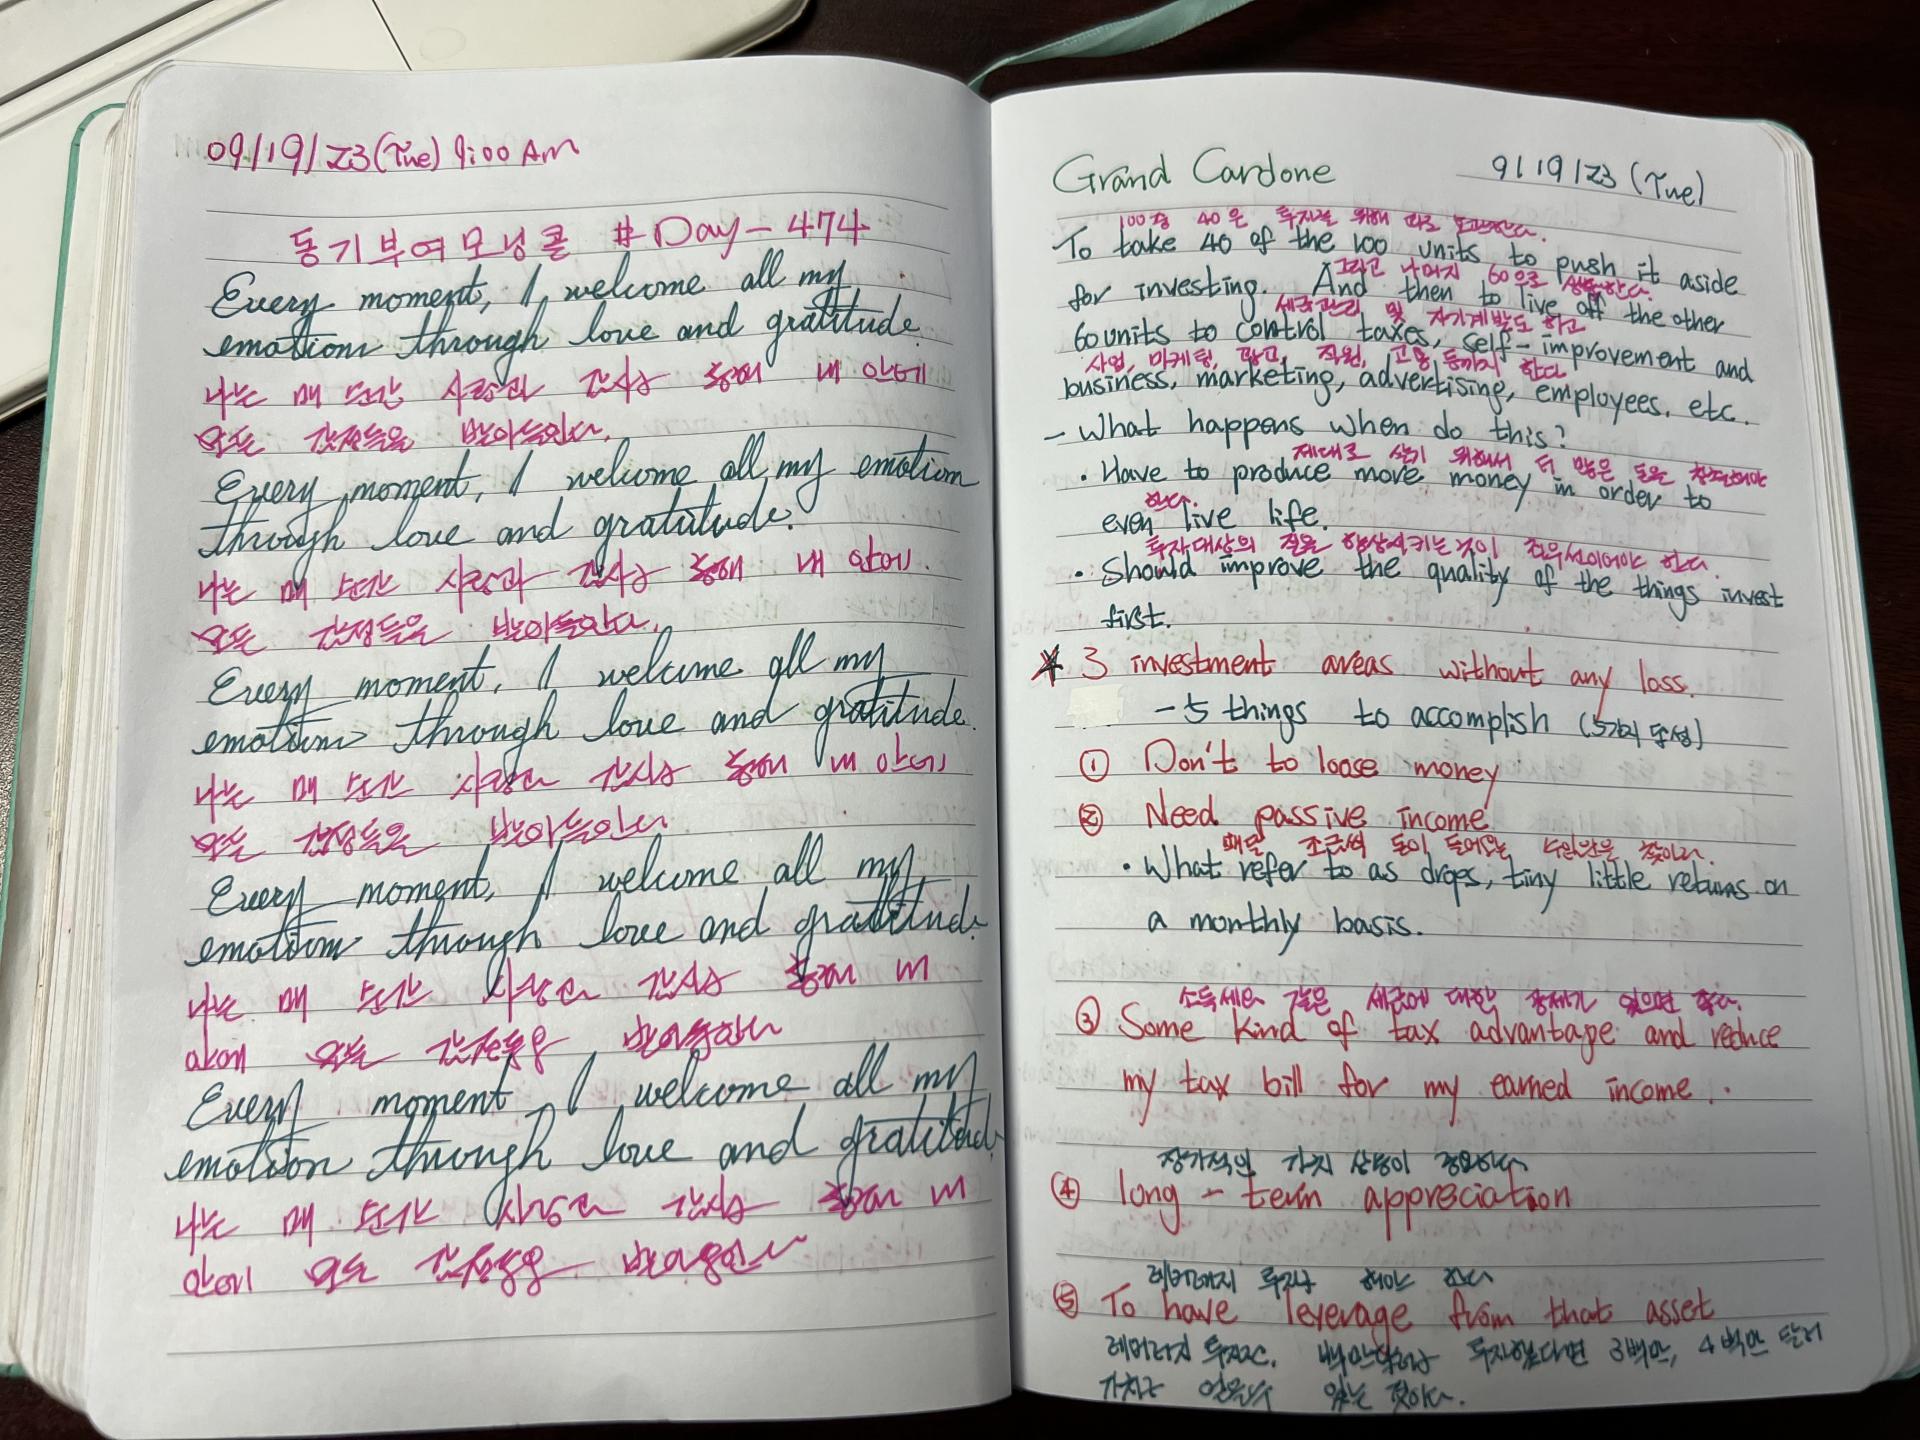 09/19/23(Tue) 9:00 Am
동기부여모닝콜 # Day - 474
Every moment, I welcome all my
emotions through love and gratitude.
나는 매 순간 사랑과 감사를 통해 내 안에
모든 감정들을 받아들인다.
Every moment, I welcome all my emotion
through love and gratitude.
나는 매 순간 사랑과 감사를 통해 내 안에
모든 감정들을 받아들인다.
Every moment, I welcome all my
emotion through love and gratitude.
나는 매 순간 사랑과 감사를 통해 내 안에
모든 감정들을 받아들인다
Every moment, I welcome all my
emotion through love and gratitude.
나는 매 순간 사랑과 감사를 통해 내
안에 모든 감정들을 받아들인다
Every moment, I welcome all my
emotion through love and gratitude.
나는 매 순간 사랑과 감사를 통해 내
안에 모든 감정들을 받아들인다
Grand Cardone 9/19/23 (Tue)
100중 40은 투자를 위해 따로
To take 40 of the 100 units to push it aside
그리고 나머지 60으로 생활한다.
for investing. And then to live off the other
세금관리 및 자기계발도 하고
60units to control taxes, self-improvement and
사업, 마케팅, 광고, 직원, 고용 등까지 한다
business, marketing, advertising, employees. etc.
- What happens when do this?
제대로 살기 위해서 더 많은 돈을 창출해야
· Have to produce more money in order to
한다.
even live life.
투자대상의 질을 향상시키는 것이 최우선이어야 한다.
· Should improve the quality of the things invest
first.
3 investment areas without any loss.
- 5 things to accomplish (5가지 달성)
① Don't to loose money
② Need passive income
매달 조금씩 돈이 들어오는 수입원을 찾아라.
· What refer to as drops, tiny little returns on
a monthly basis.
소득세와 같은 세금에 대한 공제가 있으면 좋다.
③ Some kind of tax advantage and reduce
my tax bill for my earned income.
장기적인 가치 상승이 중요하다
④ long-term appreciation
레버리지 투자를 해야 한다
⑤ To have leverage from that asset
레버리지 투자로. 백만달러를 투자했다면 3백만, 4백만 달러
가치를 얻을 수 있는 것이다.